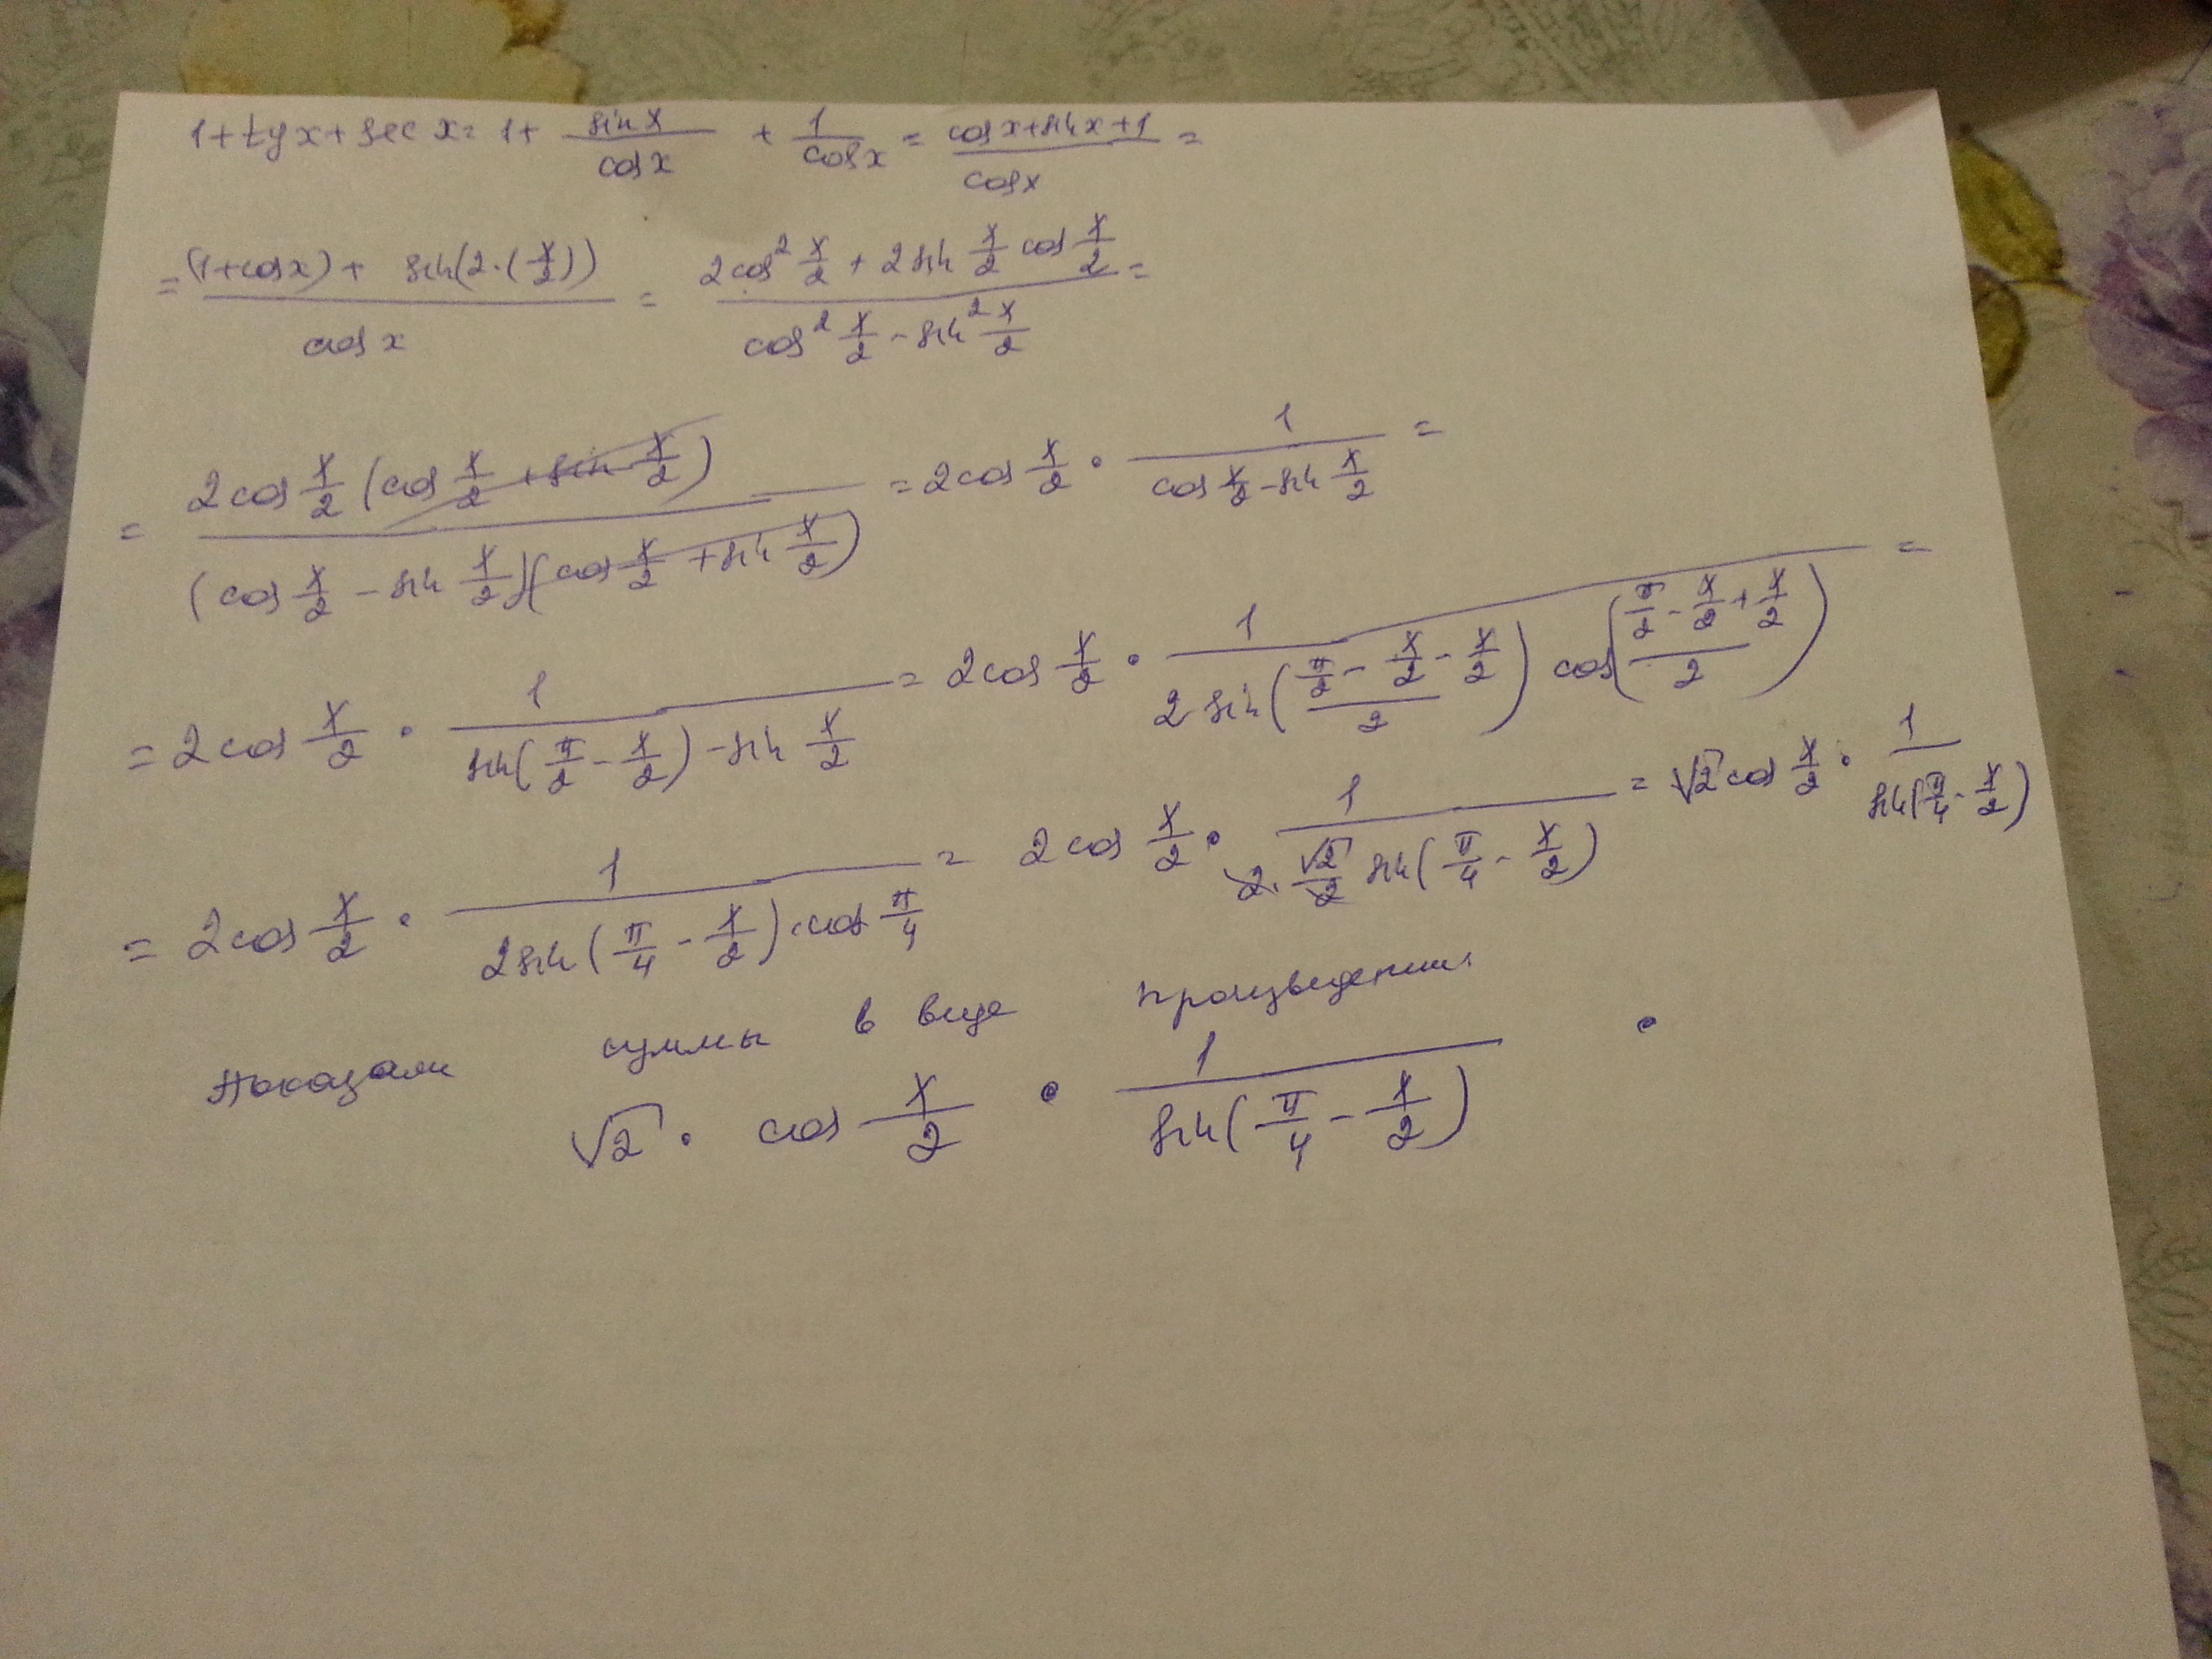 1+tgx+secx=1+ sinx/cosx + 1/cosx = (cosx+sinx+1)/cosx =
= ((1+cosx)+ sin(2·(x/2)))/cosx = (2cos² x/2 + 2sin x/2 cos x/2)/(cos² x/2 - sin² x/2) =
= (2cos x/2 (cos x/2 + sin x/2))/((cos x/2 - sin x/2)(cos x/2 + sin x/2)) = 2cos x/2 · 1/(cos x/2 - sin x/2) =
= 2cos x/2 · 1/(sin(π/2 - x/2) - sin x/2) = 2cos x/2 · 1/(2 sin((π/2 - x/2 - x/2)/2) cos((π/2 - x/2 + x/2)/2)) =
= 2cos x/2 · 1/(2sin(π/4 - x/2)·cos π/4) = 2cos x/2 · 1/(2·√2/2 sin(π/4 - x/2)) = √2 cos x/2 · 1/sin(π/4 - x/2)
Показали суммы в виде произведения
√2 · cos x/2 · 1/sin(π/4 - x/2) .